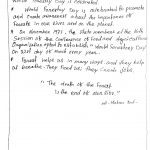 World Forestry Day is celebrated
* World Forestry Day is celebrated to promote
and create movement about the importance of
forests in our lives and on the planet.
* In November 1971, the State members at the 16th
Session of the Conference of Food and Agriculture
Organization voted to establish "World Forestry Day"
on 21st day of March every year.
* Forest helps us in many ways and they help
us breathe. They feed us. They create jobs.
"The death of the forest
is the end of our life"